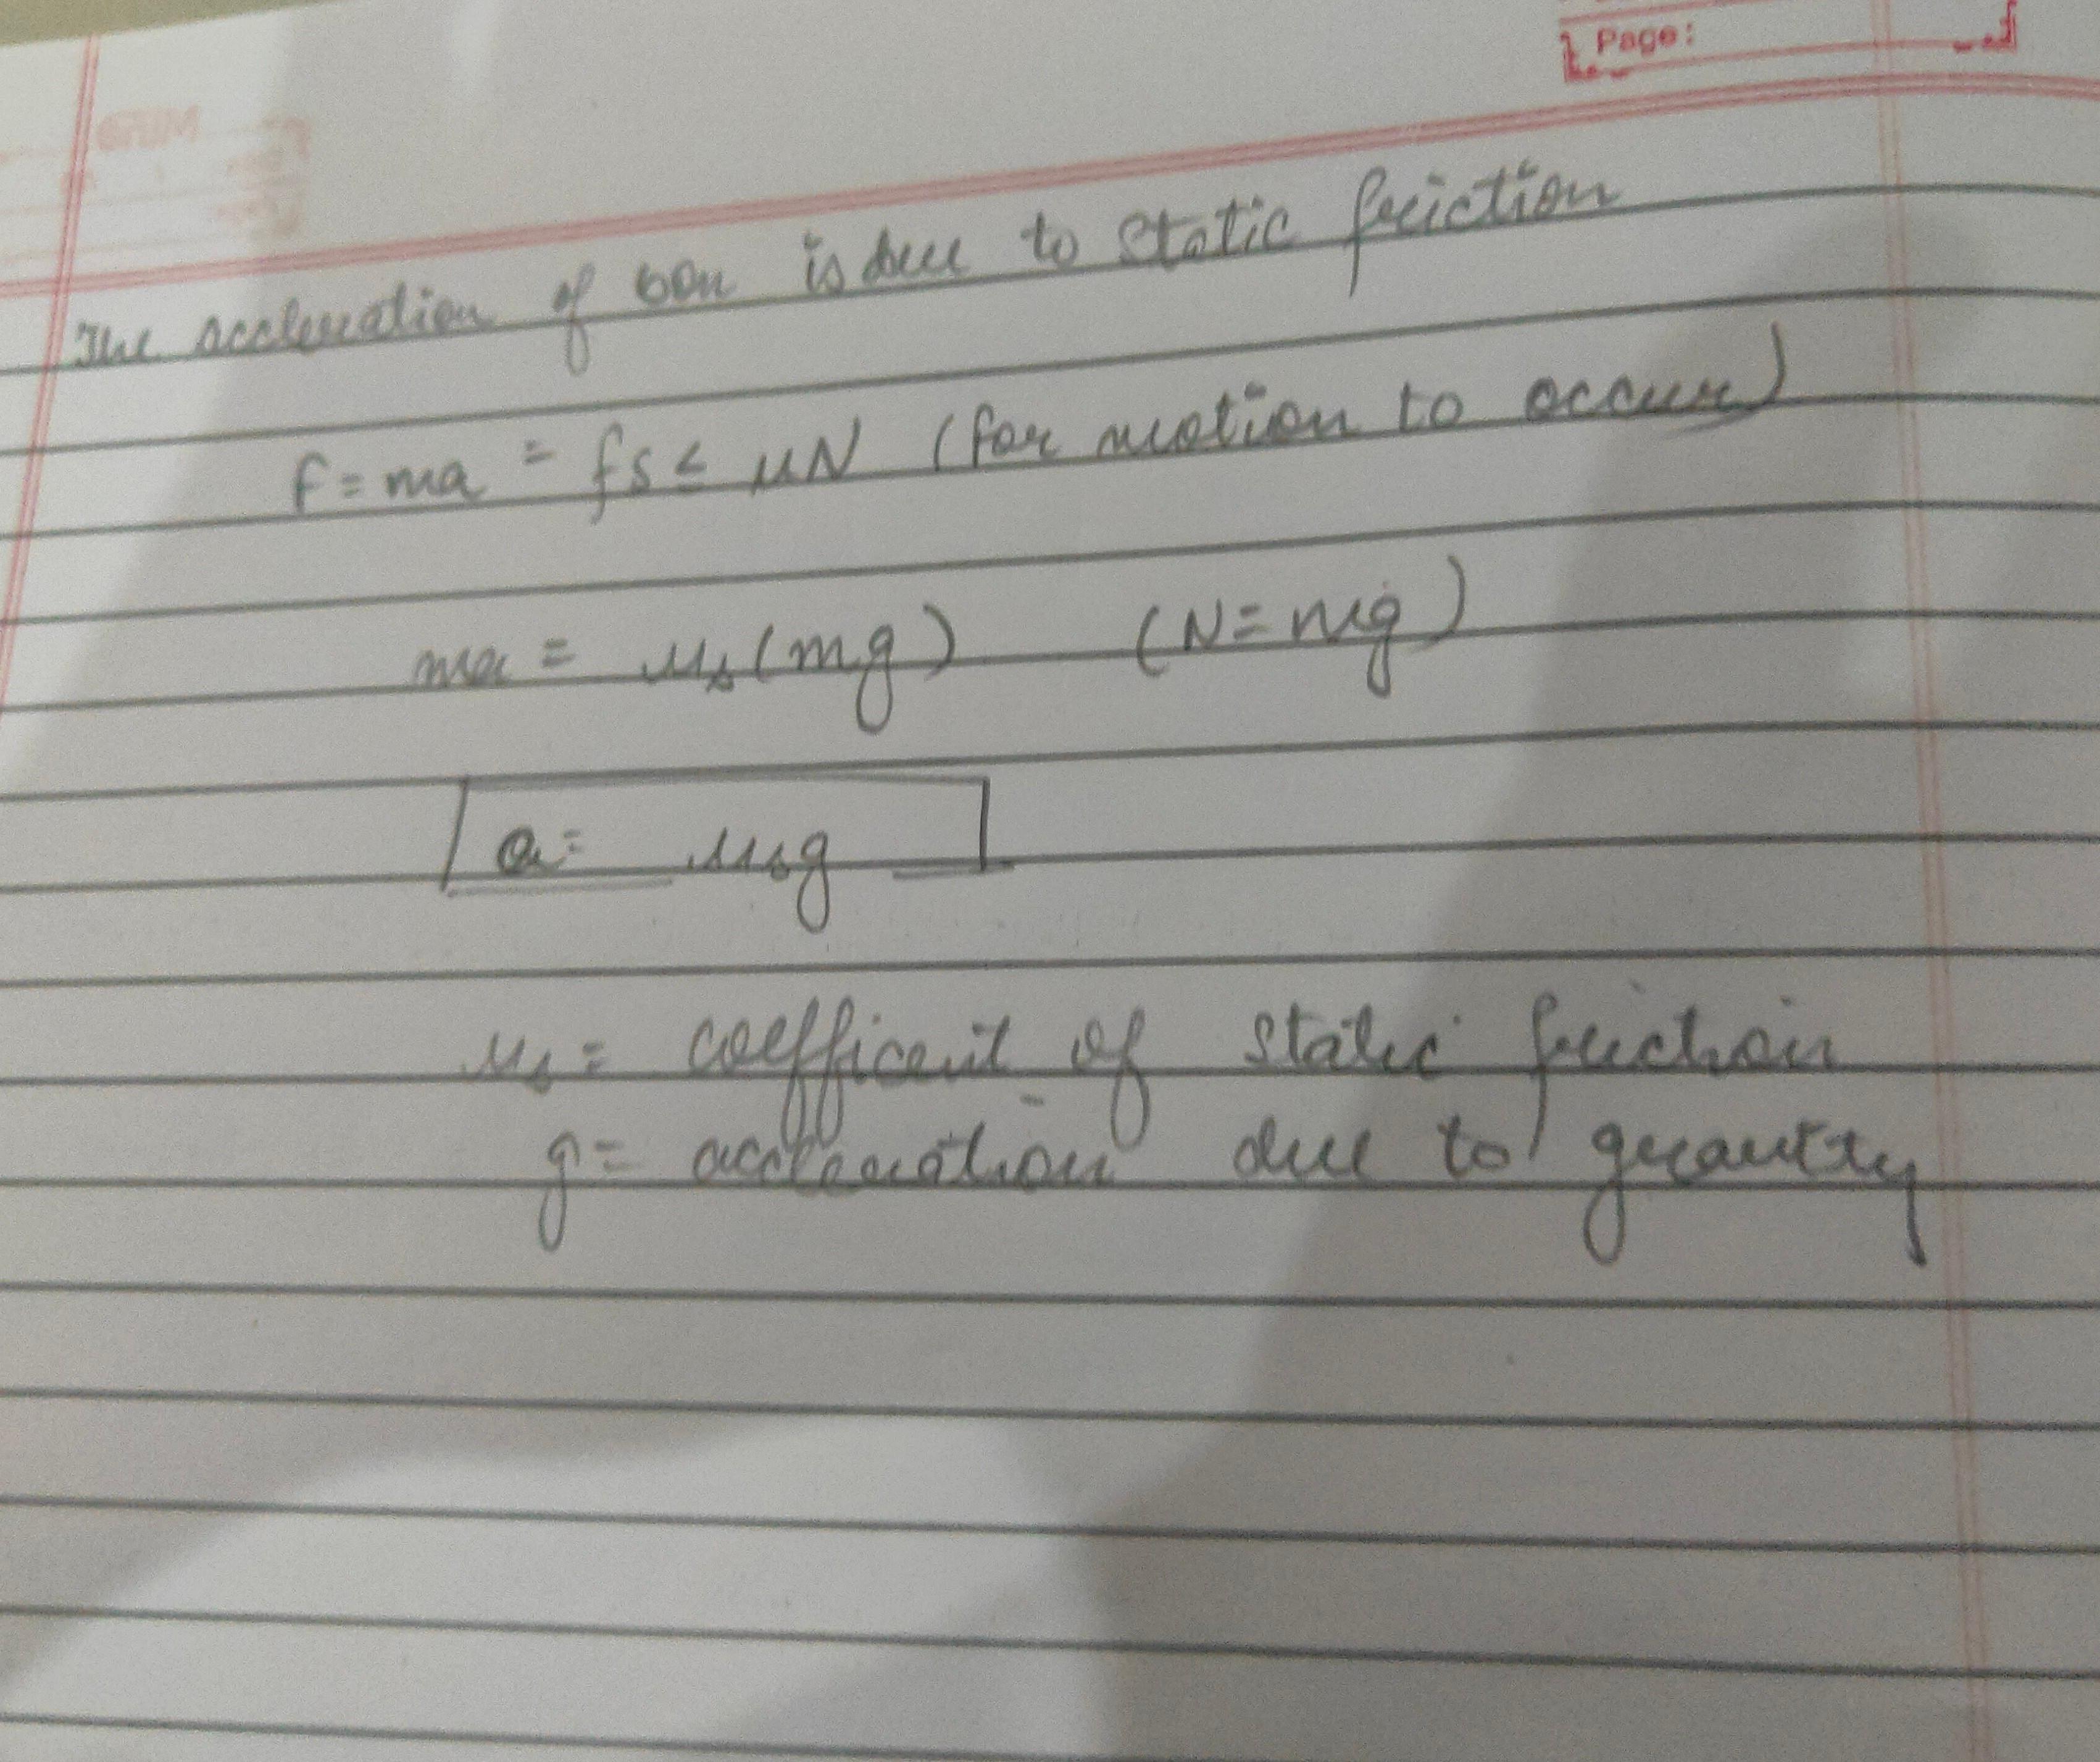 Page:
The accleration of box is due to static friction
f = ma = fs ≤ μN (for motion to occur)
ma = μs (mg) (N = mg)
a = μsg
μs = coefficent of static friction
g = accleration due to gravity